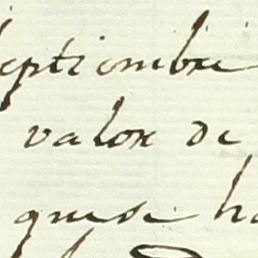 eptiembre
valor de
quese ha